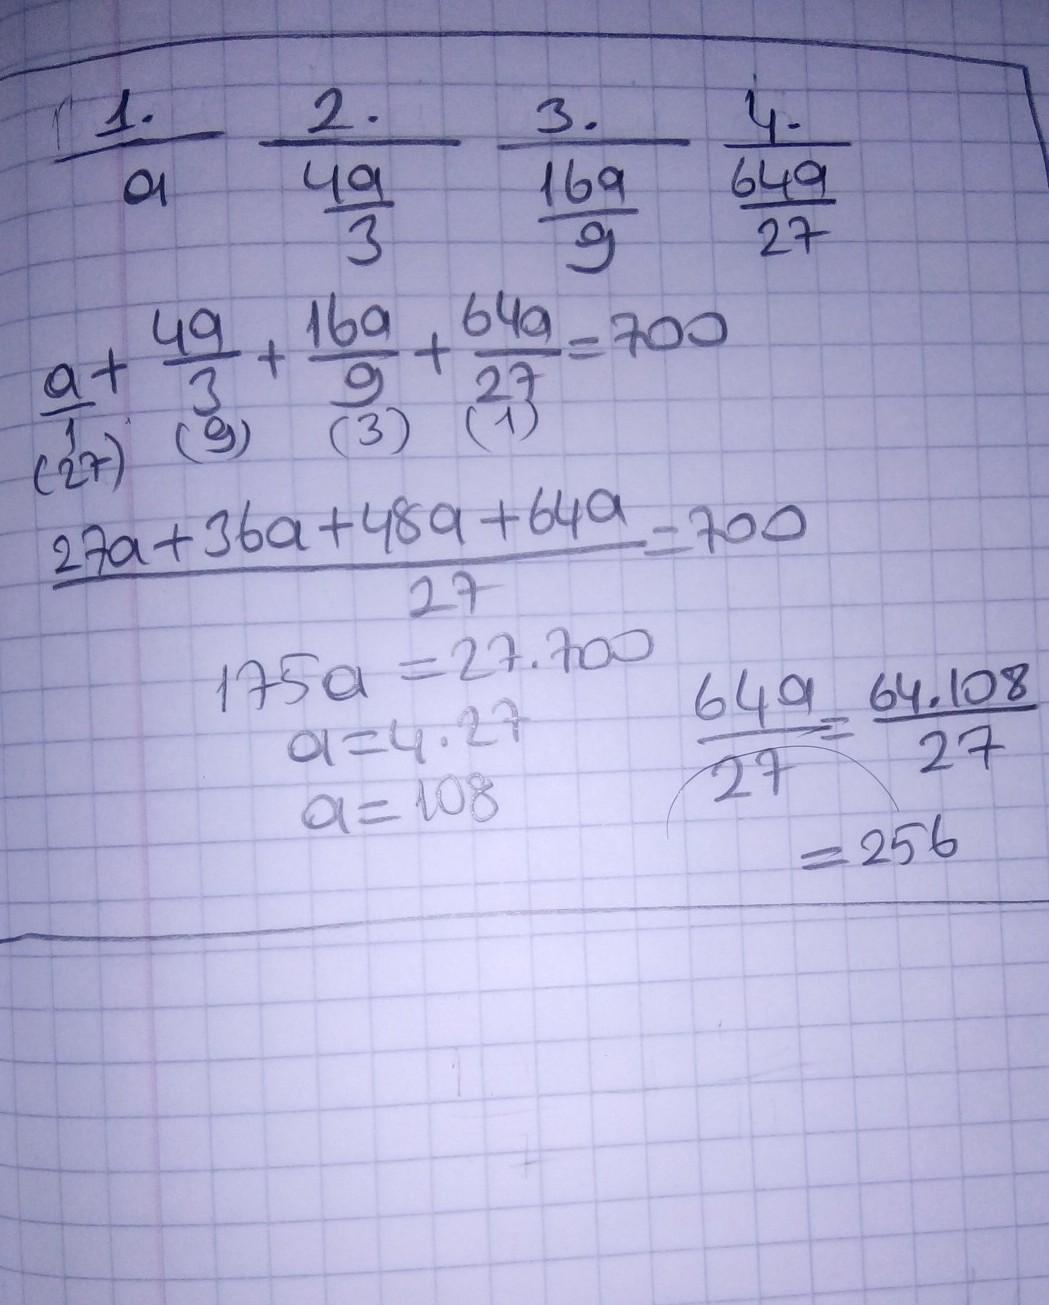 1. 2. 3. 4.
a 4a/3 16a/9 64a/27
a/1 + 4a/3 + 16a/9 + 64a/27 = 700
(27) (9) (3) (1)
27a+36a+48a+64a/27 = 700
175a = 27.700
a=4.27
a=108
64a/27 = 64.108/27
= 256